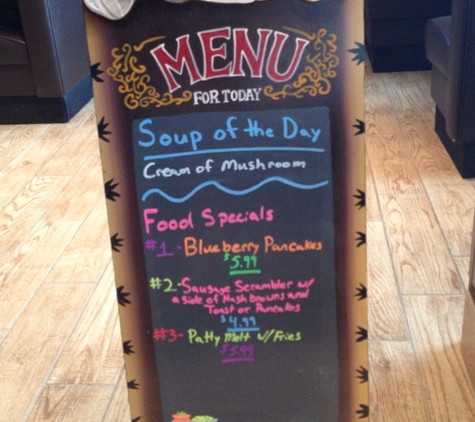 MENU
FOR TODAY
Soup of the Day
Cream of Mushroom
Food Specials
#1 - Blueberry Pancakes
$5.99
#2 - Sausage Scrambler w/
a side of Hash browns and
Toast or Pancakes
$4.99
#3 - Patty Melt w/ Fries
$5.99